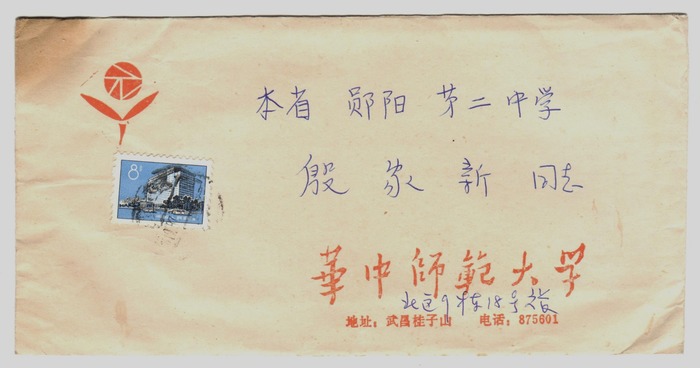 8分
本省 郧阳 第二中学
殷家新 同志
華中師範大学
北区9栋18号殷
地址：武昌桂子山 电话：875601